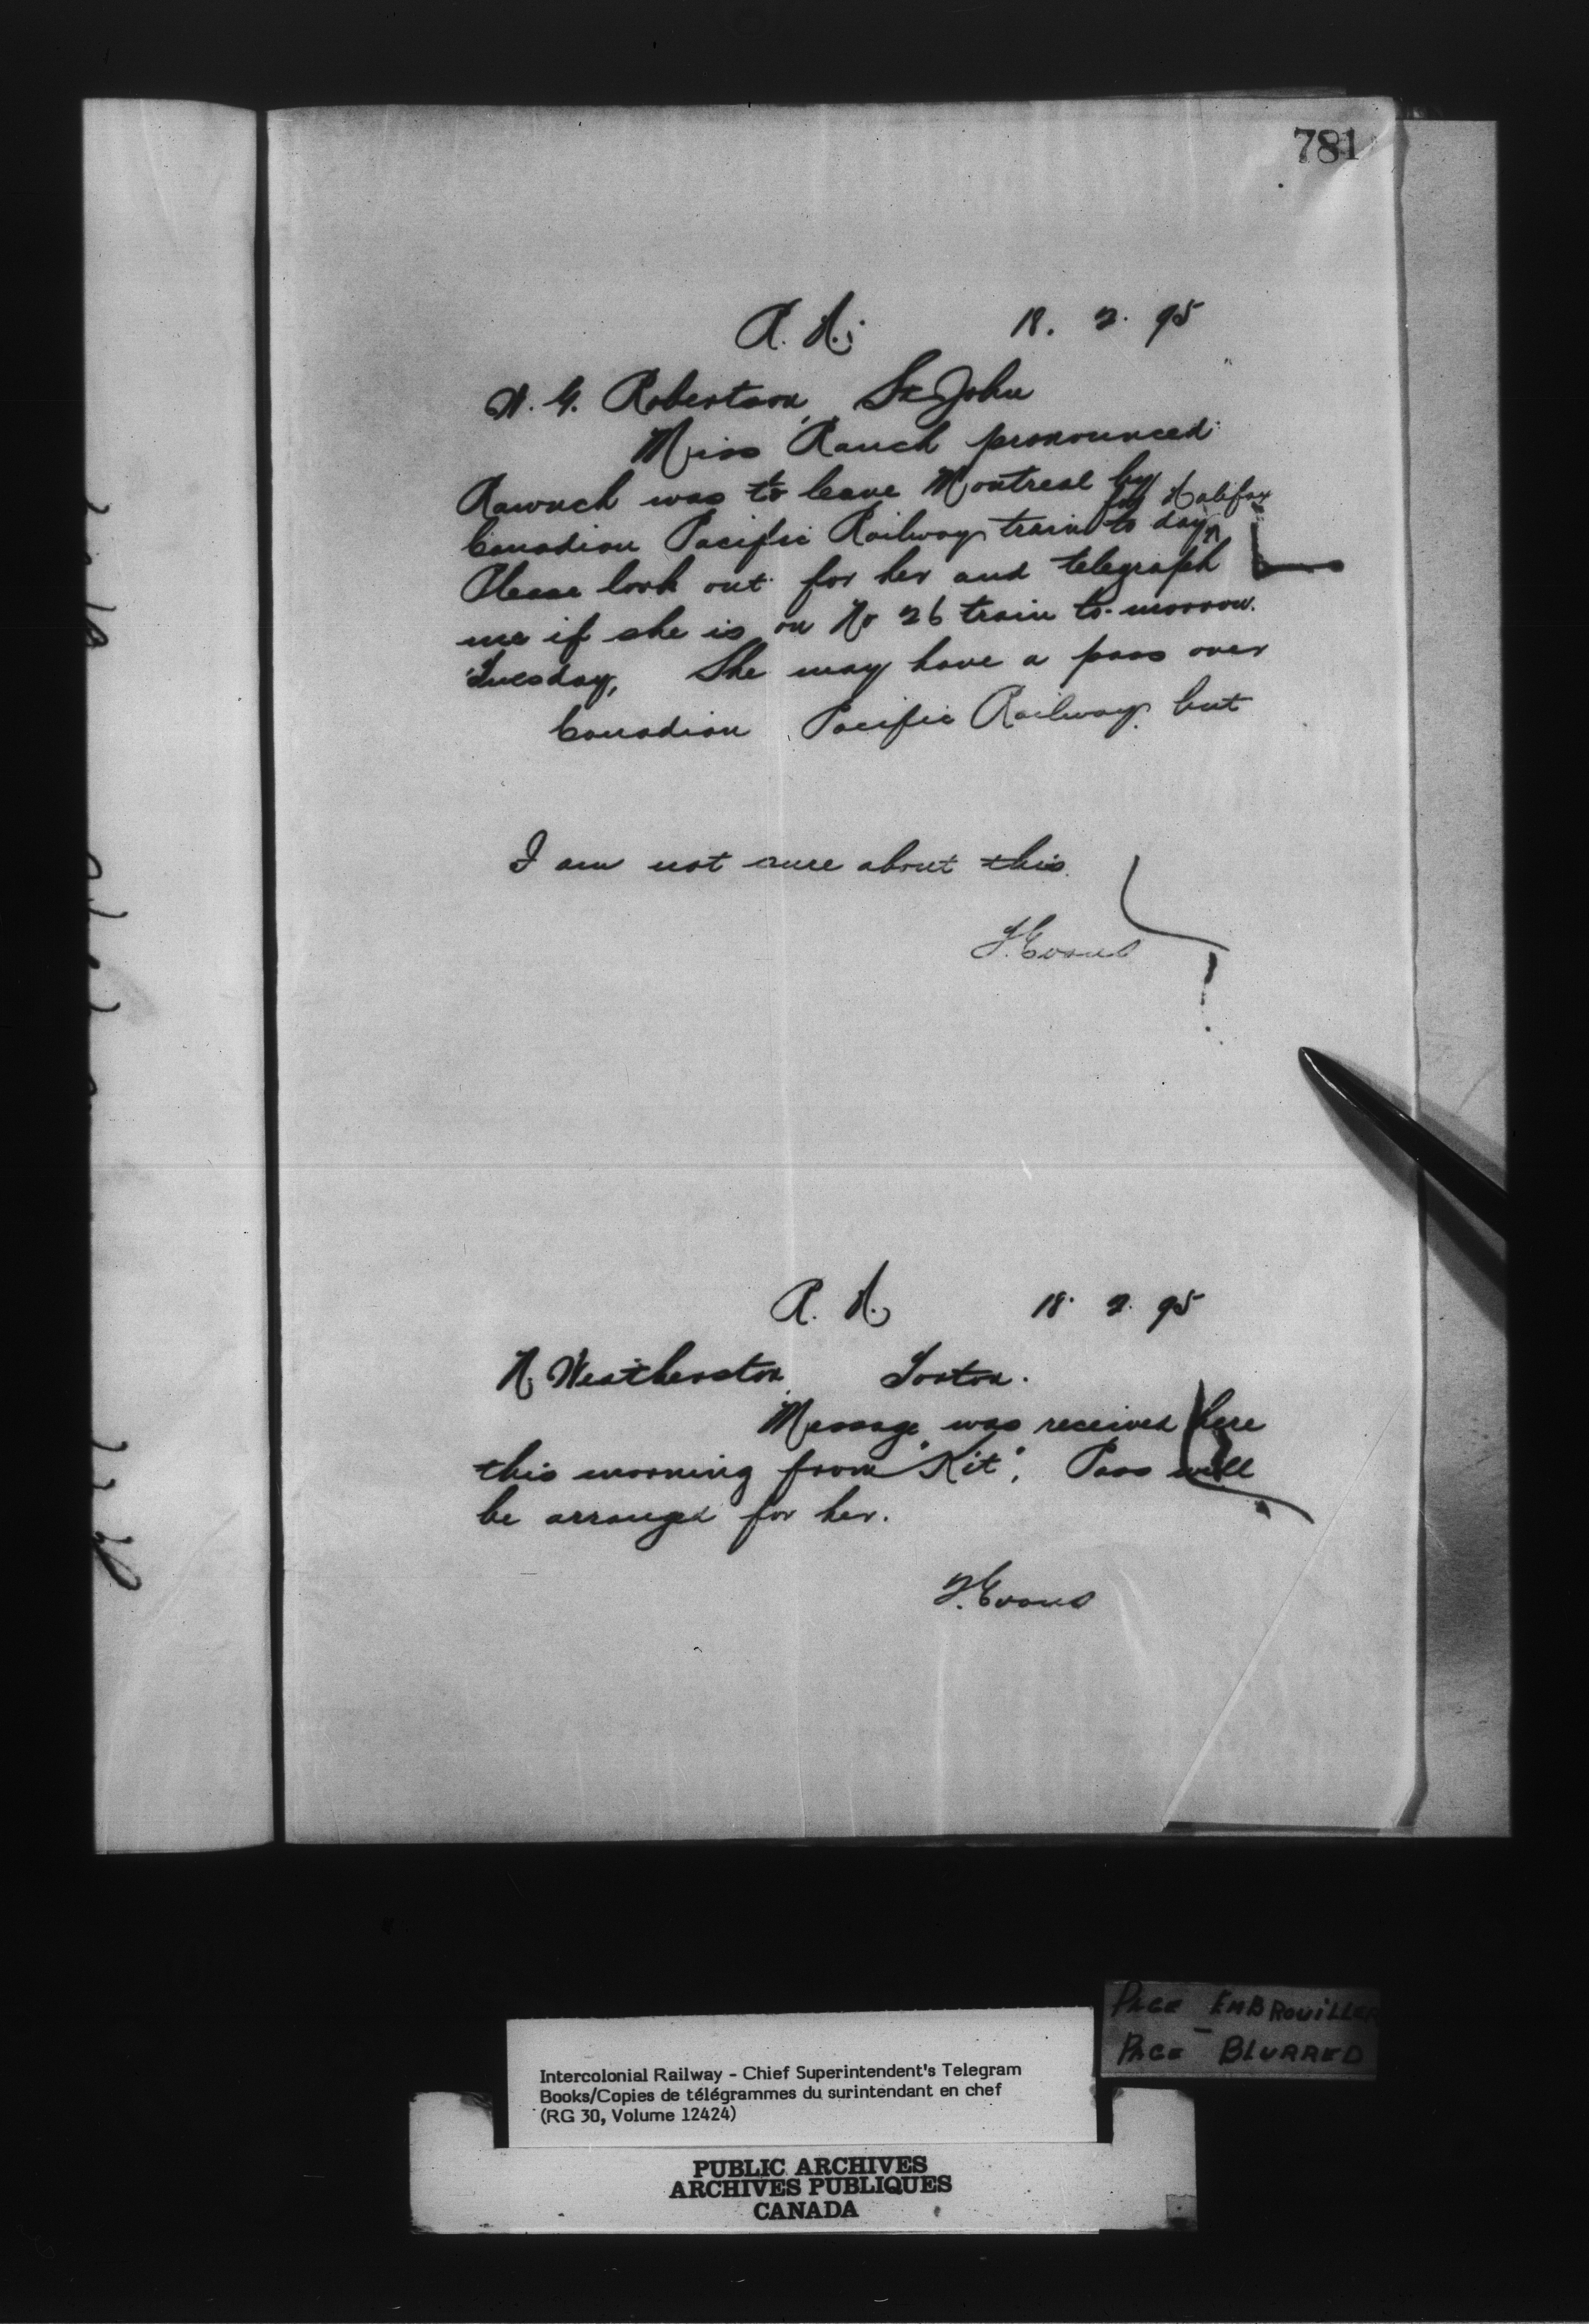 781
R. R. 18. 2. 95
W. G. Robertson, St John
Miss Rauch pronounced
Rawnch was to leave Montreal by
Canadian Pacific Railway train to day for Halifax
Please look out for her and telegraph
me if she is on No 26 train to-morrow.
Tuesday, She may have a pass over
Canadian Pacific Railway but
I am not sure about this.
F. Evans
R. R. 18. 2. 95
Weatherston
Message was received here
this morning from "Kit". Pass will
be arranged for her.
F. Evans
PAGE EMBROUILLER
PAGE BLURRED
Intercolonial Railway - Chief Superintendent's Telegram
Books/Copies de télégrammes du surintendant en chef
(RG 30, Volume 12424)
PUBLIC ARCHIVES
ARCHIVES PUBLIQUES
CANADA